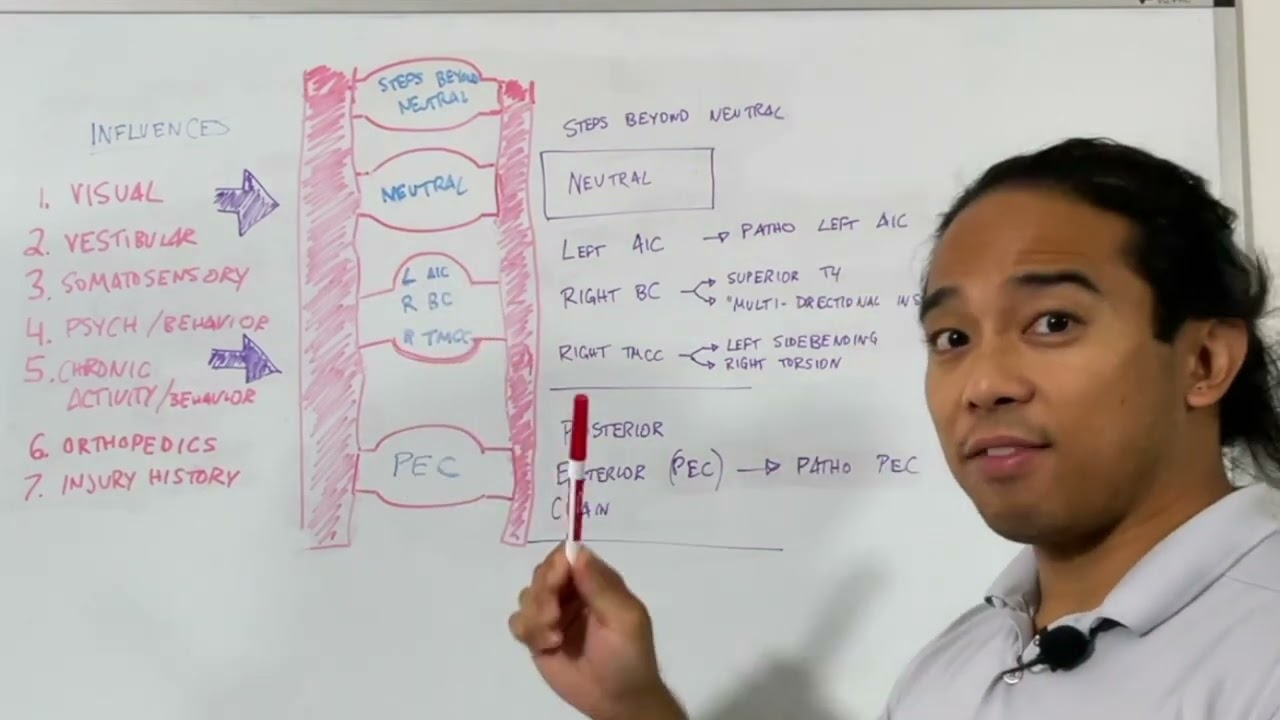 INFLUENCES
1. VISUAL
2. VESTIBULAR
3. SOMATOSENSORY
4. PSYCH/BEHAVIOR
5. CHRONIC
ACTIVITY/BEHAVIOR
6. ORTHOPEDICS
7. INJURY HISTORY
STEPS BEYOND
NEUTRAL
NEUTRAL
L AIC
R BC
R TMCC
PEC
STEPS BEYOND NEUTRAL
NEUTRAL
LEFT AIC → PATHO LEFT AIC
RIGHT BC → SUPERIOR T4
→ "MULTI-DRECTIONAL INS
RIGHT TMCC → LEFT SIDEBENDING
→ RIGHT TORSION
POSTERIOR
EXTERIOR (PEC) → PATHO PEC
CHAIN